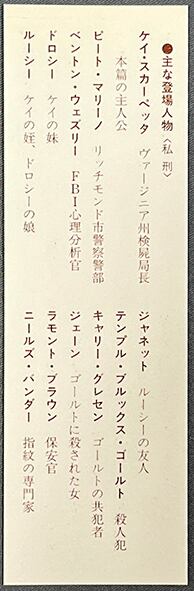 ●主な登場人物〈私刑〉
ケイ・スカーペッタ　ヴァージニア州検屍局長
本篇の主人公
ピート・マリーノ　リッチモンド市警察警部
ベントン・ウェズリー　FBI心理分析官
ドロシー　ケイの妹
ルーシー　ケイの姪、ドロシーの娘
ジャネット　ルーシーの友人
テンプル・ブルックス・ゴールト　殺人犯
キャリー・グレセン　ゴールトの共犯者
ジェーン　ゴールトに殺された女
ラモント・ブラウン　保安官
ニールズ・バンダー　指紋の専門家